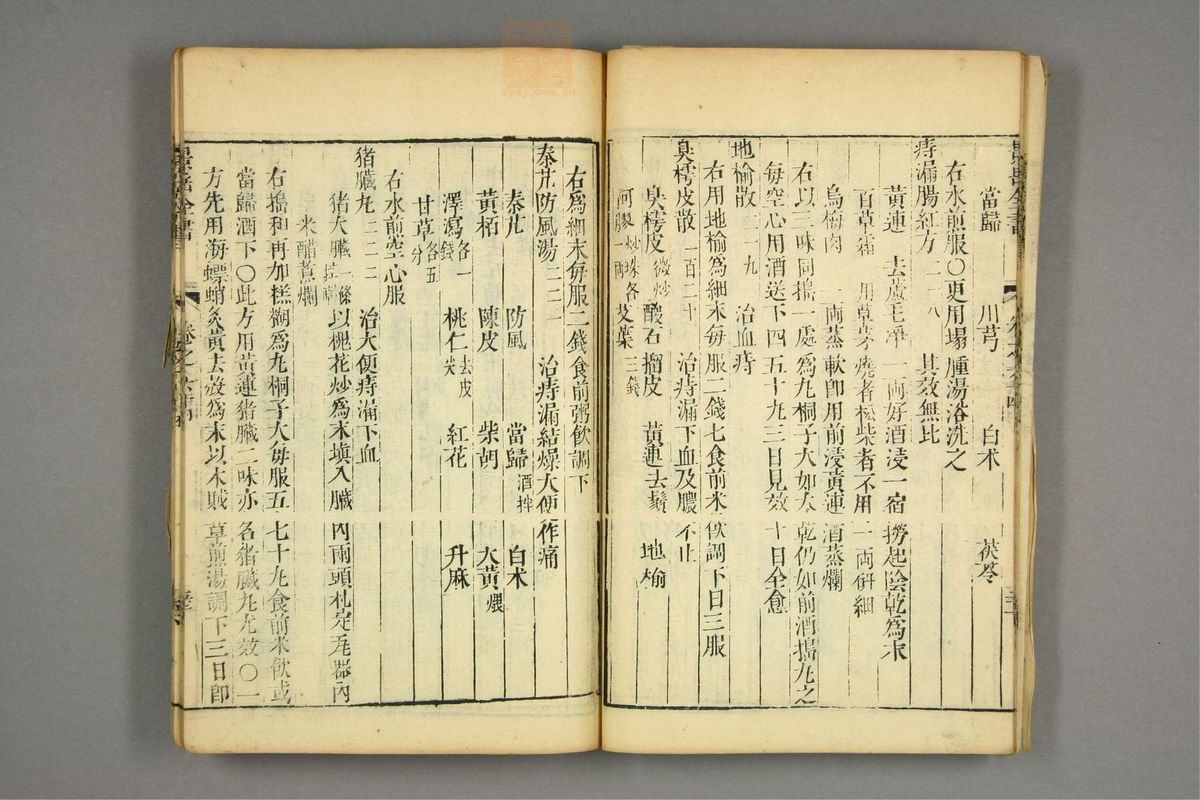 當歸 川芎 白朮 茯苓
右水煎服○更用塌腫湯浴洗之
痔漏腸紅方二一八 其效無比
黃連 去蘆毛淨一兩好酒浸一宿撈起陰乾為末
百草霜 用草茅燒者極柴者不用一兩研細
烏梅肉 一兩蒸軟卽用前浸黃連酒蒸爛
右以三味同搗一處為丸桐子大如太乾仍如前酒搗丸之
每空心用酒送下四五十丸三日見效十日全愈
地榆散 二一九 治血痔
右用地榆為細末每服二錢七食前米飲調下日三服
臭樗皮散一百二十 治痔漏下血及膿不止
臭樗皮微炒 酸石榴皮 黃連去鬚 地榆
阿膠炒珠各一兩 艾葉三錢
右為細末每服二錢食前粥飲調下
秦艽防風湯二二一 治痔漏結燥大便作痛
秦艽 防風 當歸酒拌 白朮
黃栢 陳皮 柴胡 大黃煨
澤瀉各一錢 桃仁去皮尖 紅花 升麻
甘草各五分
右水煎空心服
猪臟丸二二二 治大便痔漏下血
猪大臟一條控乾 以槐花炒為末塡入臟內兩頭札定瓦器內
米醋煮爛
右搗和再加糕糊為丸桐子大每服五七十丸食前米飲或
當歸酒下○此方用黃連猪臟二味亦名猪臟丸尤效○一
方先用海螵蛸灸黃去殼為末以木賊草煎湯調下三日卽
景岳全書
卷之六十四
zysj.com.cn